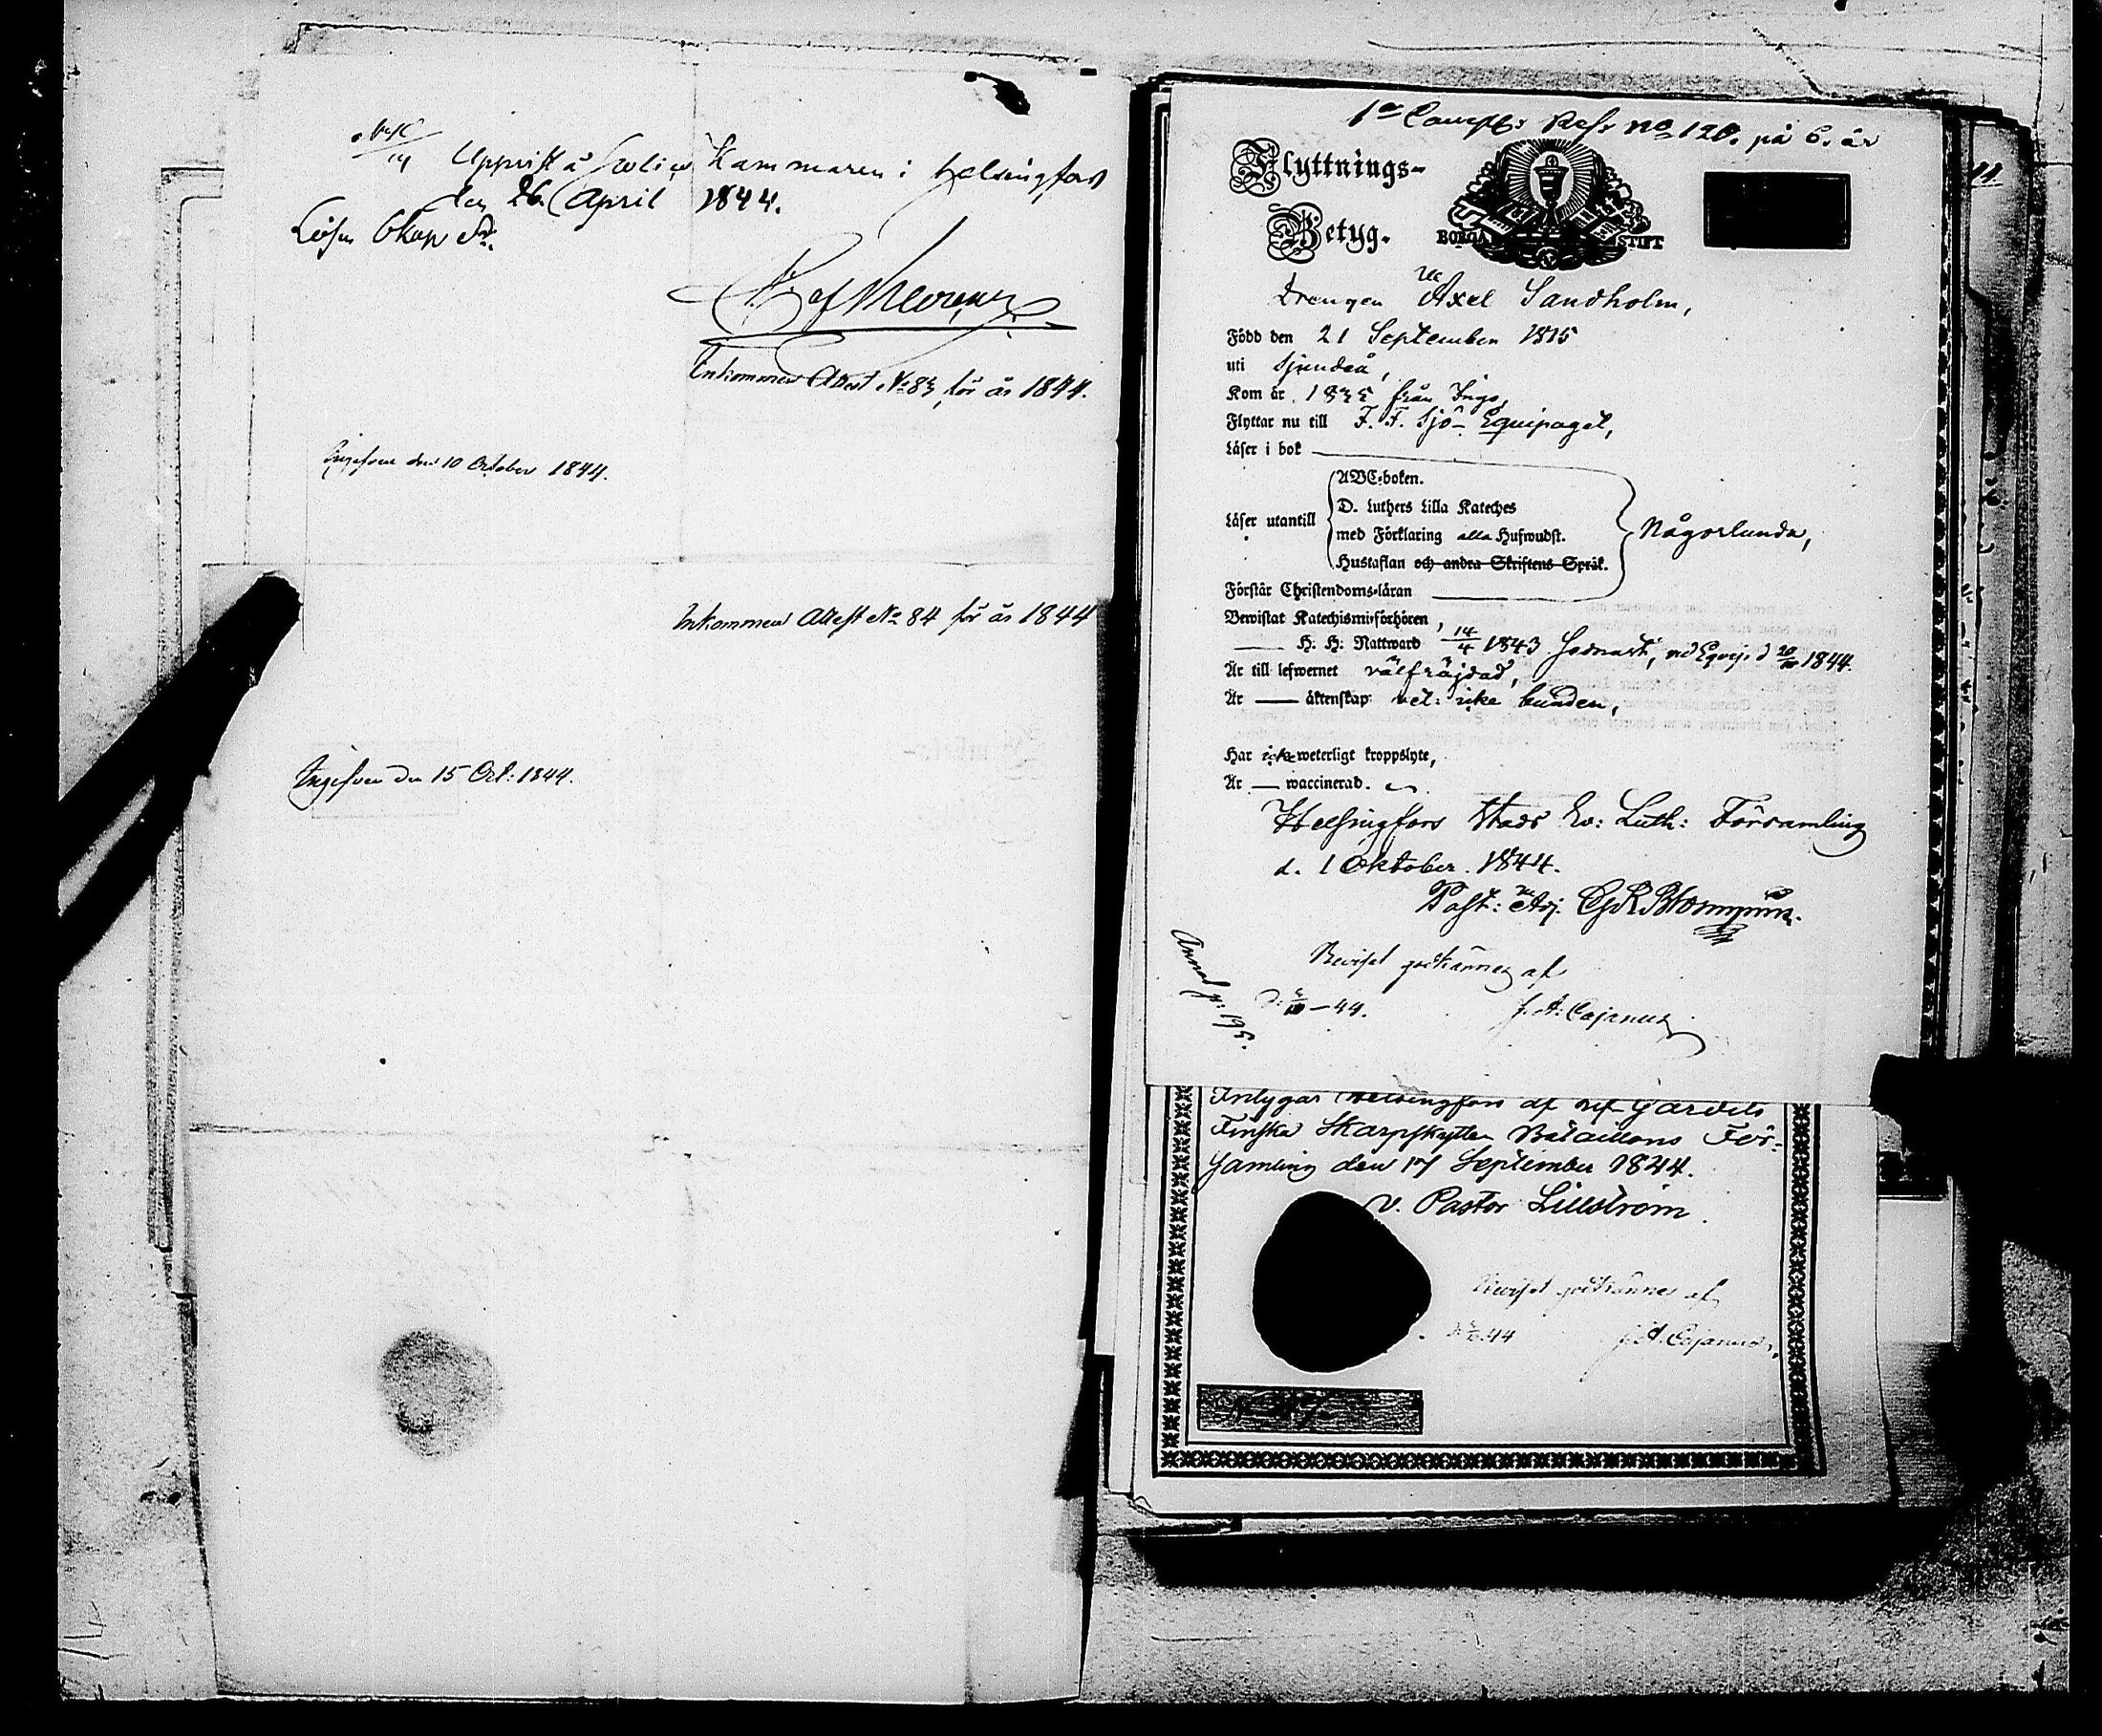 Uppvist å Police Kammaren i Helsingfors
den 26 April 1844.
Lösen 6 kop Sr.
Inkommen Attest No 83, för år 1844.
Ingifven den 10 October 1844.
Inkommen Attest No 84 för år 1844
Ingifven den 15 Oct: 1844.
1a Comp: Ress No 120. på 6. år
Flyttnings-
Betyg.
BORGÅ STIFT
Drengen Axel Sandholm,
Född den 21 September 1815
uti Sjundeå,
Kom år 1835 från Ingo,
Flyttar nu till F. F. Sjö-Equipaget,
Läser i bok
ABC-boken.
D. Luthers Lilla Kateches
Läser utantill
med Förklaring alla Hufwudst.
Någorlunda,
Hustaflan och andra Skriftens Språk.
Förstår Christendoms-läran
Bewistat Katechismi-förhören,
H. H. Nattward 14/4 1843 vid Eqvip. d 20/10 1844.
Är till lefwernet välfräjdad,
Är — äktenskap vet: icke bunden,
Har icke weterligt kroppslyte,
Är — waccinerad.
Helsingfors Stads Ev: Luth: Församling
d. 1 Oktober. 1844.
Past: Adj.
Beviset godkännes af
44.
J. A. Cajanus
Annot p: 195.
Intygar Helsingfors af Lif-Gardets
Finska Skarpskytte Bataillons För-
samling den 17 September 1844.
V. Pastor Lillström.
Beviset godkännes af
44
J. A. Cajanus.
11